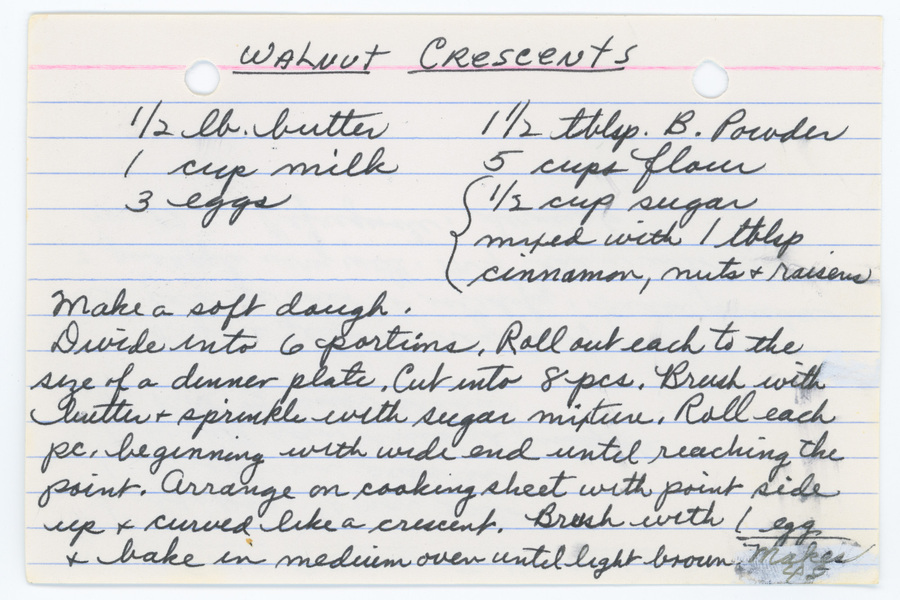 WALNUT CRESCENTS
1/2 lb. butter
1 cup milk
3 eggs
1 1/2 tblsp. B. Powder
5 cups flour
1/2 cup sugar
mixed with 1 tblsp
cinnamon, nuts + raisens
Make a soft dough.
Divide into 6 portions. Roll out each to the
size of a dinner plate. Cut into 8 pcs. Brush with
butter + sprinkle with sugar mixture. Roll each
pc. beginning with wide end until reaching the
point. Arrange on cooking sheet with point side
up + curved like a crescent. Brush with 1 egg
+ bake in medium oven until light brown. Makes
45